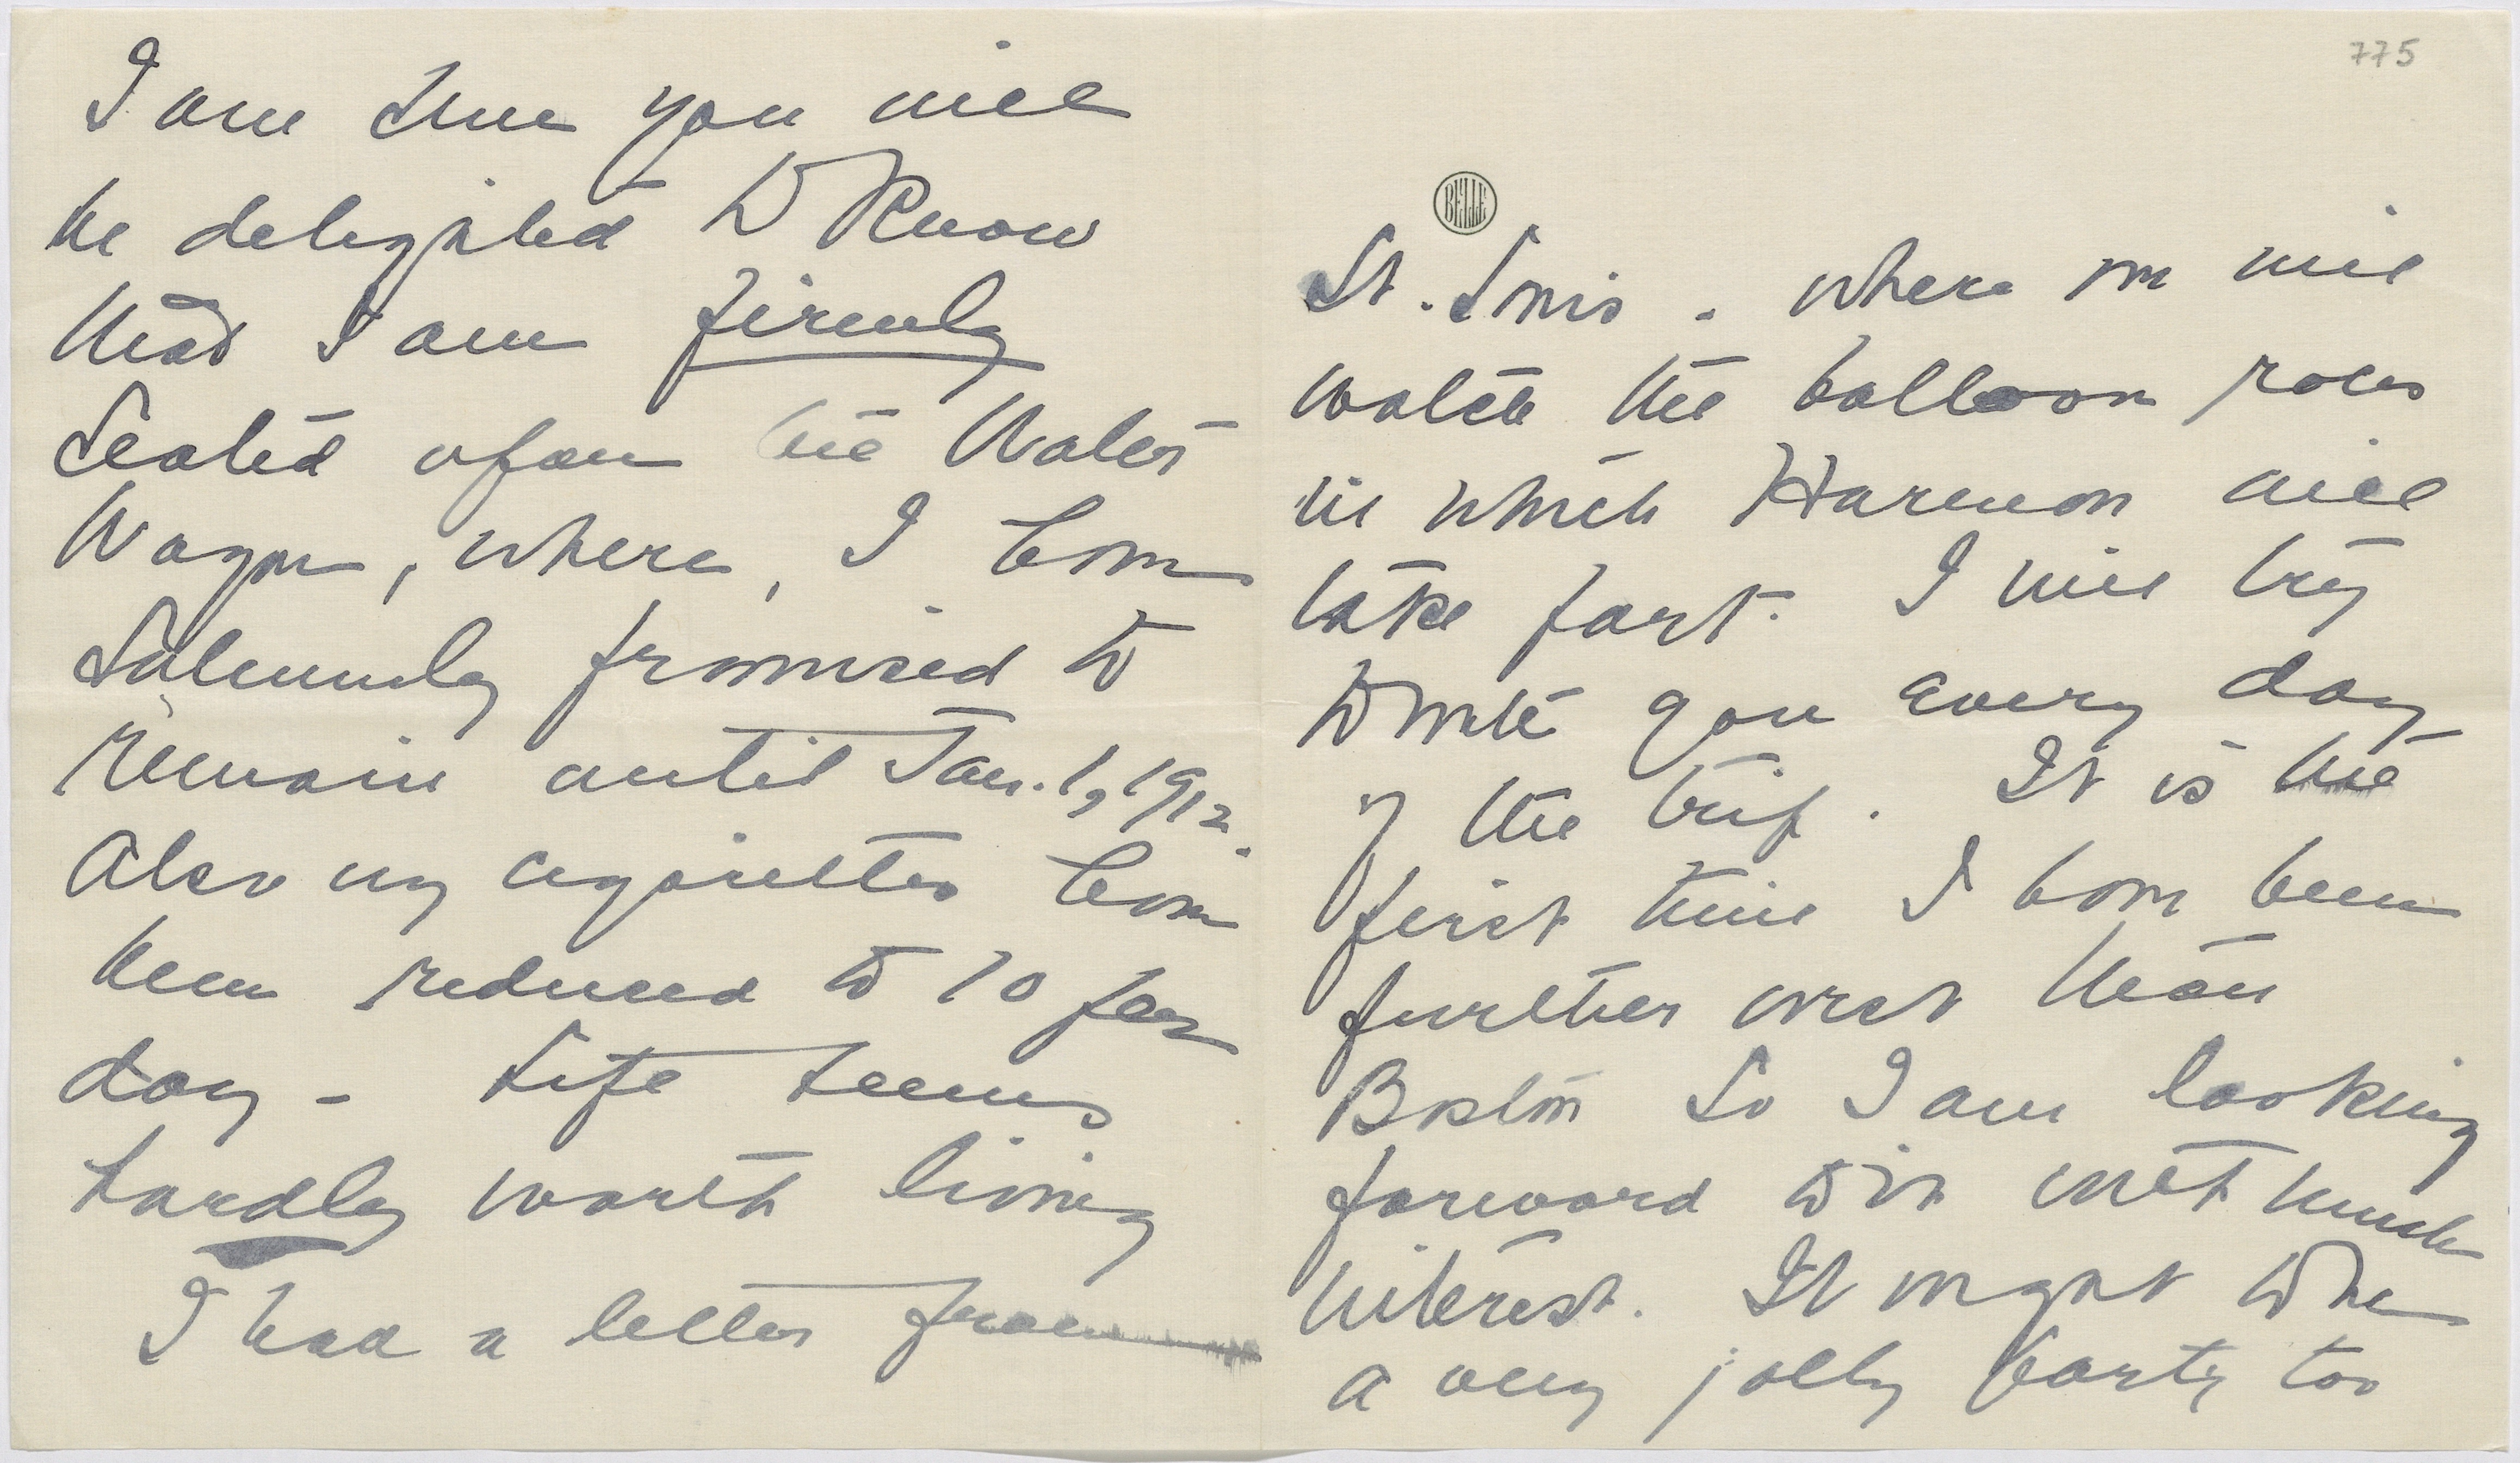 I am sure you will
be delighted to know
that I am firmly
seated upon the Water
Wagon, where, I have
solemnly promised to
remain until Jan. 1, 1912.
Also my cigarettes have
been reduced to 10 per
day - Life seems
hardly worth living
I had a letter from
775
BELLE
St. Louis - where we will
watch the balloon races
in which Harmon will
take part. I will try
to write you every day
of the trip. It is the
first time I have been
further west than
Boston so I am looking
forward to it with much
interest. It ought to be
a very jolly party too